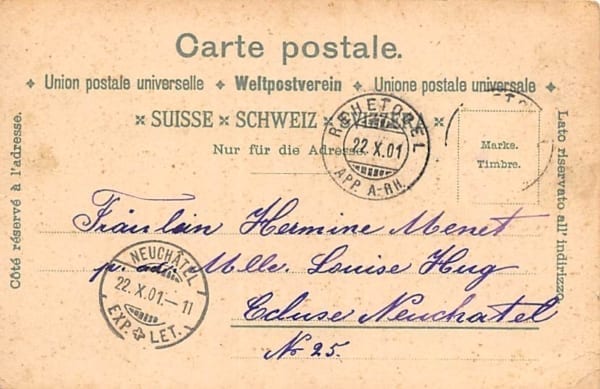 Carte postale.
✦ Union postale universelle ✦ Weltpostverein ✦ Unione postale universale ✦
× SUISSE × SCHWEIZ × SVIZZERA
Nur für die Adresse.
Côté réservé à l'adresse.
Lato riservato all' indirizzo.
Marke.
Timbre.
REHETOBEL
22.X.01
APP. A-RH.
Fräulein Hermine Menet
p. adr. Mlle. Louise Hug
Ecluse Neuchatel
No 25.
NEUCHÂTEL
22.X.01.-11
EXP. LET.